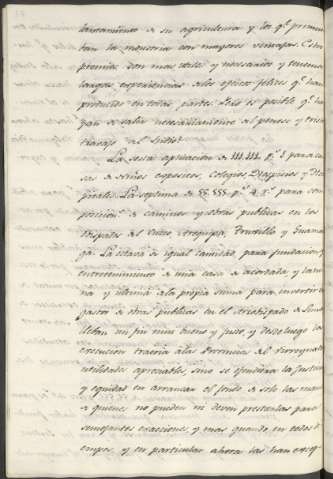 lantamiento de su agricultura y los q.e promue
ban la industria con mayores ventajas. Estos
premios son mas utiles y necesarios y tenemos
largas experiencias de los efectos felices q.e han
producido en todas partes. Pero es posible q.e ha
yan de salir
al
La sexta aplicacion de 111.111. p.s 1 para ca
sas de niños expositos, colegios, Hospicios y Hos
pitales. La septima de 55.555. p.s 4 r.s para com
posicion de caminos y obras publicas en los
Obispados del Cuzco Arequipa, Truxillo y Guaman
ga. La octava de igual cantidad para fundacion y
entretenimiento de una casa de acordada y la nove
na y ultima a la propia suma para invertir en
gastos de obras publicas en el Arzobispado de Lima
llevan un fin mui bueno y justo, y desde luego la
execucion traeria a las Provincias del Virreynato
utilidades apreciables, sino se ofendiera la justicia
y equidad en arrancar el fondo de solo las manos
a quienes no pueden ni deven prestarlas para
semejantes exacciones, y mas quando en todos ti
empos, y en particular ahora las han